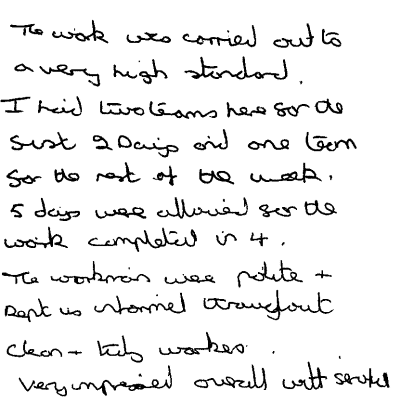 The work was carried out to
a very high standard.
I had two teams here for the
first 2 Days and one team
for the rest of the week.
5 days were allowed for the
work completed in 4.
The workmen were polite +
kept us informed throughout
clean + tidy workers.
Very impressed overall with service